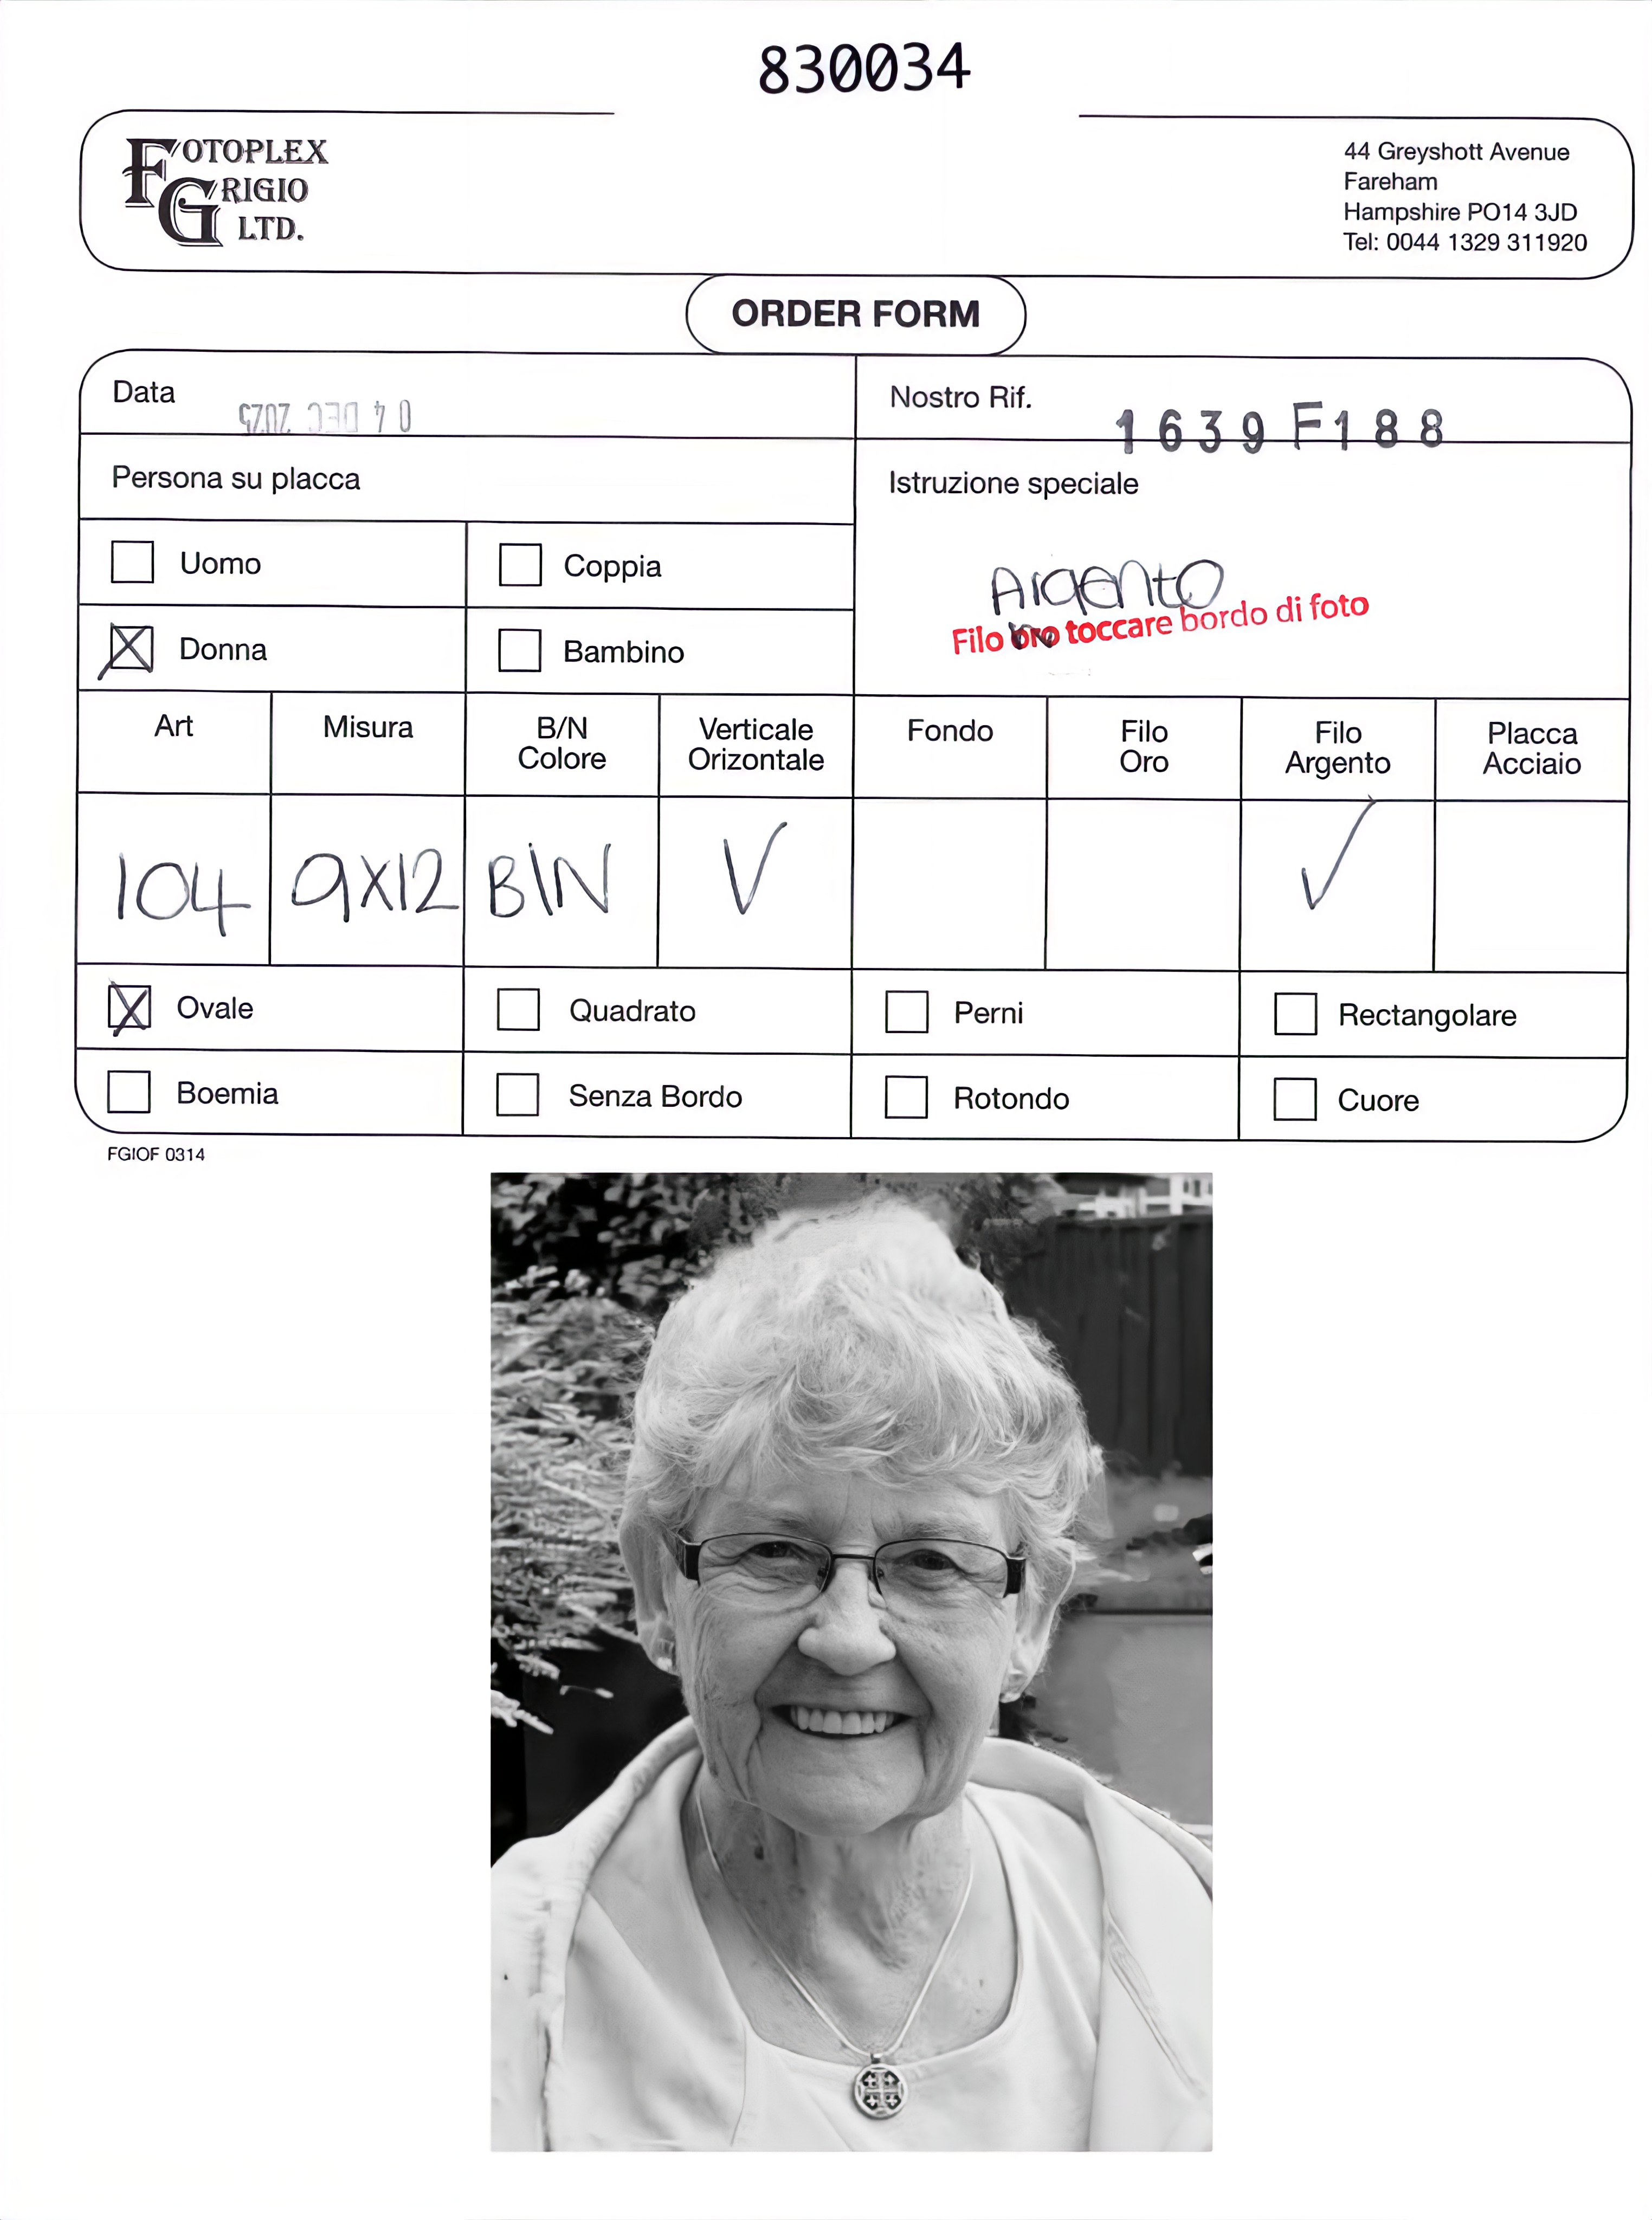 830034
FOTOPLEX
GRIGIO
LTD.
44 Greyshott Avenue
Fareham
Hampshire PO14 3JD
Tel: 0044 1329 311920
ORDER FORM
Data 04 DEC 2025
Nostro Rif. 1639 F188
Persona su placca
Istruzione speciale
Uomo
Coppia
Argento
Filo oro toccare bordo di foto
Donna
Bambino
Art Misura B/N Colore Verticale Orizontale Fondo Filo Oro Filo Argento Placca Acciaio
104 9X12 B\N V ✓
Ovale Quadrato Perni Rectangolare
Boemia Senza Bordo Rotondo Cuore
FGIOF 0314